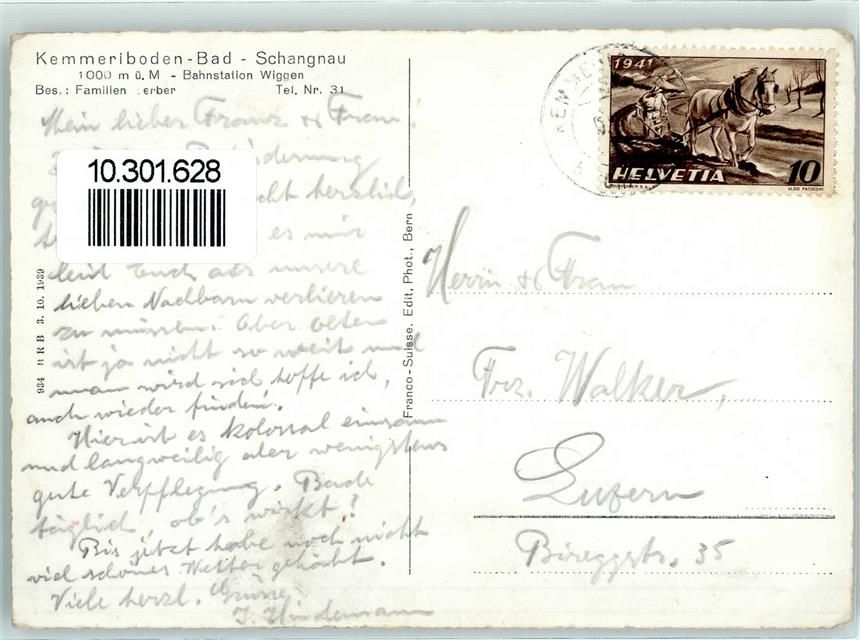 Kemmeriboden-Bad - Schangnau
1000 m ü. M - Bahnstation Wiggen
Bes.: Familien erber Tel. Nr. 31
Mein lieber Franz & Frau!
10.301.628
recht herzlich,
es mir
leid Euch als unsere
lieben Nachbarn verlieren
zu müssen. Aber Olten
ist ja nicht so weit und
man wird sich hoffe ich,
auch wieder finden.
Hier ist es kolossal einsam
und langweilig aber wenigstens
gute Verpflegung. Bade
täglich ob's wirkt!
Bis jetzt habe noch nicht
viel schönes Wetter gehabt.
Viele herzl. Grüsse
J. Hindemann
934 RRB 3. 10. 1939
Franco-Suisse. Edit, Phot., Bern
KEMME
1941
HELVETIA 10
ALDO PATOCCHI
Herrn & Frau
Frz. Walker,
Luzern
Bireggstr. 35